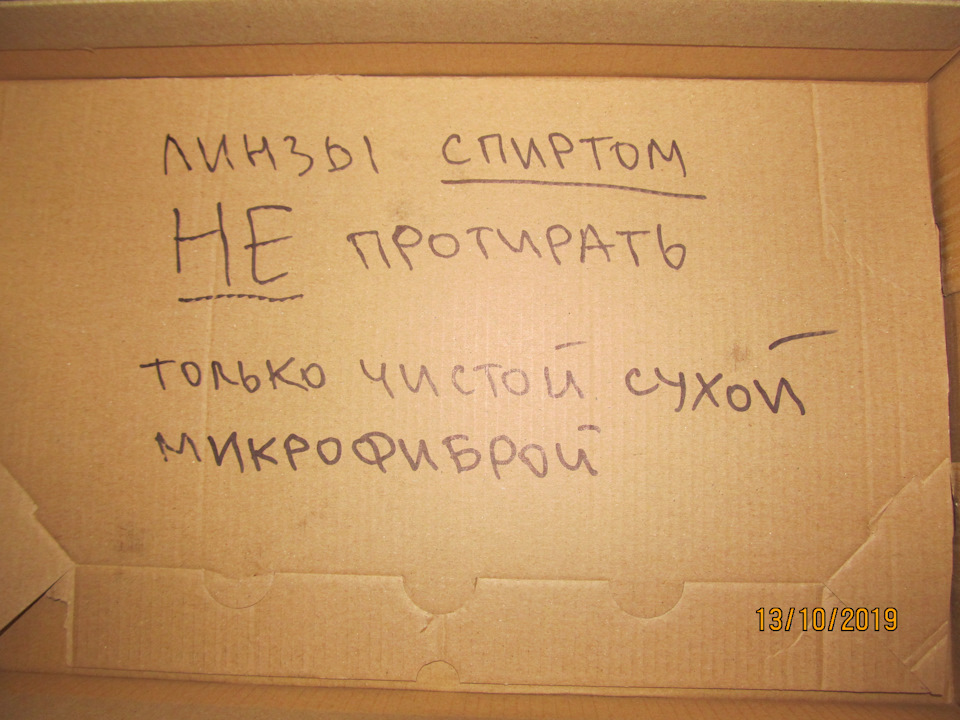 ЛИНЗЫ СПИРТОМ
НЕ ПРОТИРАТЬ
ТОЛЬКО ЧИСТОЙ СУХОЙ
МИКРОФИБРОЙ
13/10/2019